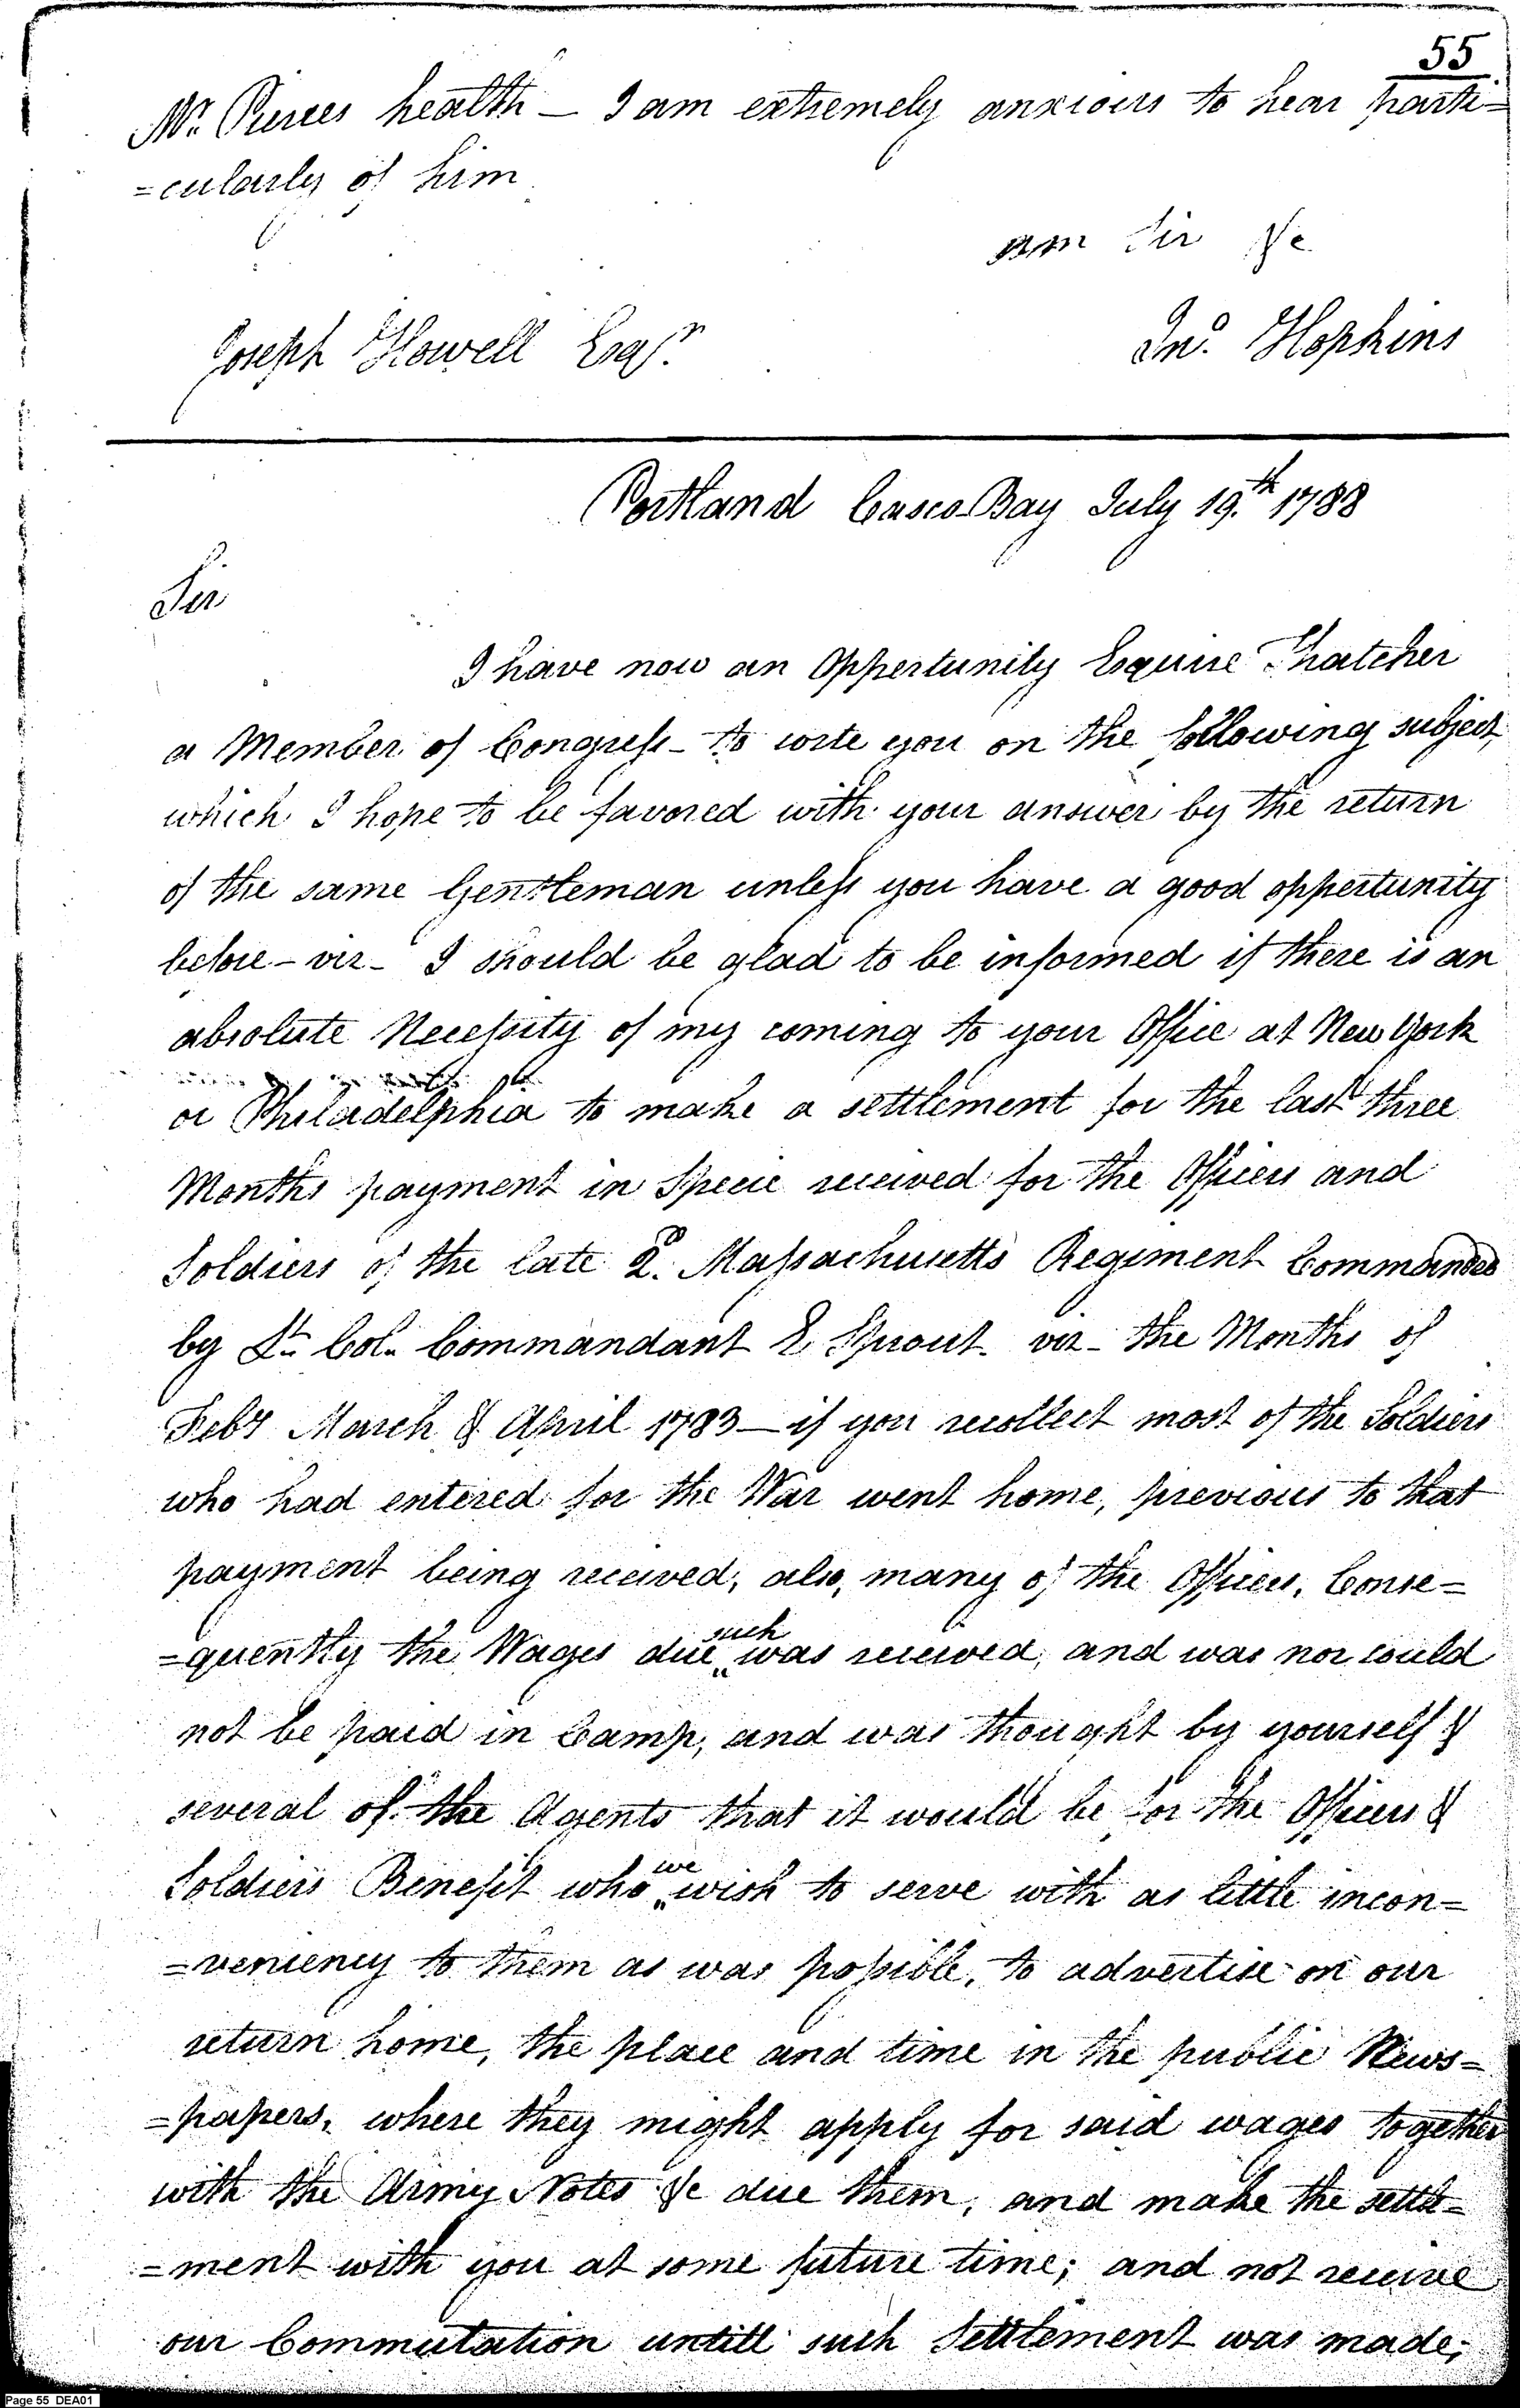 55
Mr. Pierces health — I am extremely anxious to hear parti=
=cularly of him
am Sir &c
Jno. Hopkins
Joseph Howell Esqr.
Portland Casco Bay July 19.th 1788
Sir
I have now an Oppertunity Esquire Thatcher
a Member of Congress - to write you on the following subject,
which I hope to be favored with your answer by the return
of the same Gentleman unless you have a good oppertunity
before - viz - I should be glad to be informed if there is an
absolute Necessity of my coming to your Office at New York
or Philadelphia to make a settlement for the last three
Months payment in Specie received for the Officers and
Soldiers of the late 2d. Massachusetts Regiment Commanded
by Lt. Col. Commandant E Sprout. viz - the Months of
Feby March & April 1783 — if you recollect most of the Soldiers
who had entered for the War went home, previous to that
payment being received, also, many of the Officers, Conse=
=quently the Wages due such was received, and was nor could
not be paid in Camp, and was thought by yourself &
several of the Agents that it would be for the Officers &
Soldiers Benefit who we wish to serve with as little incon=
=veniency to them as was possible, to advertise on our
return home, the place and time in the public News=
=papers, where they might apply for said wages together
with the Army Notes &c due them, and make the settle=
=ment with you at some future time; and not receive
our Commutation untill such Settlement was made;
Page 55 DEA01